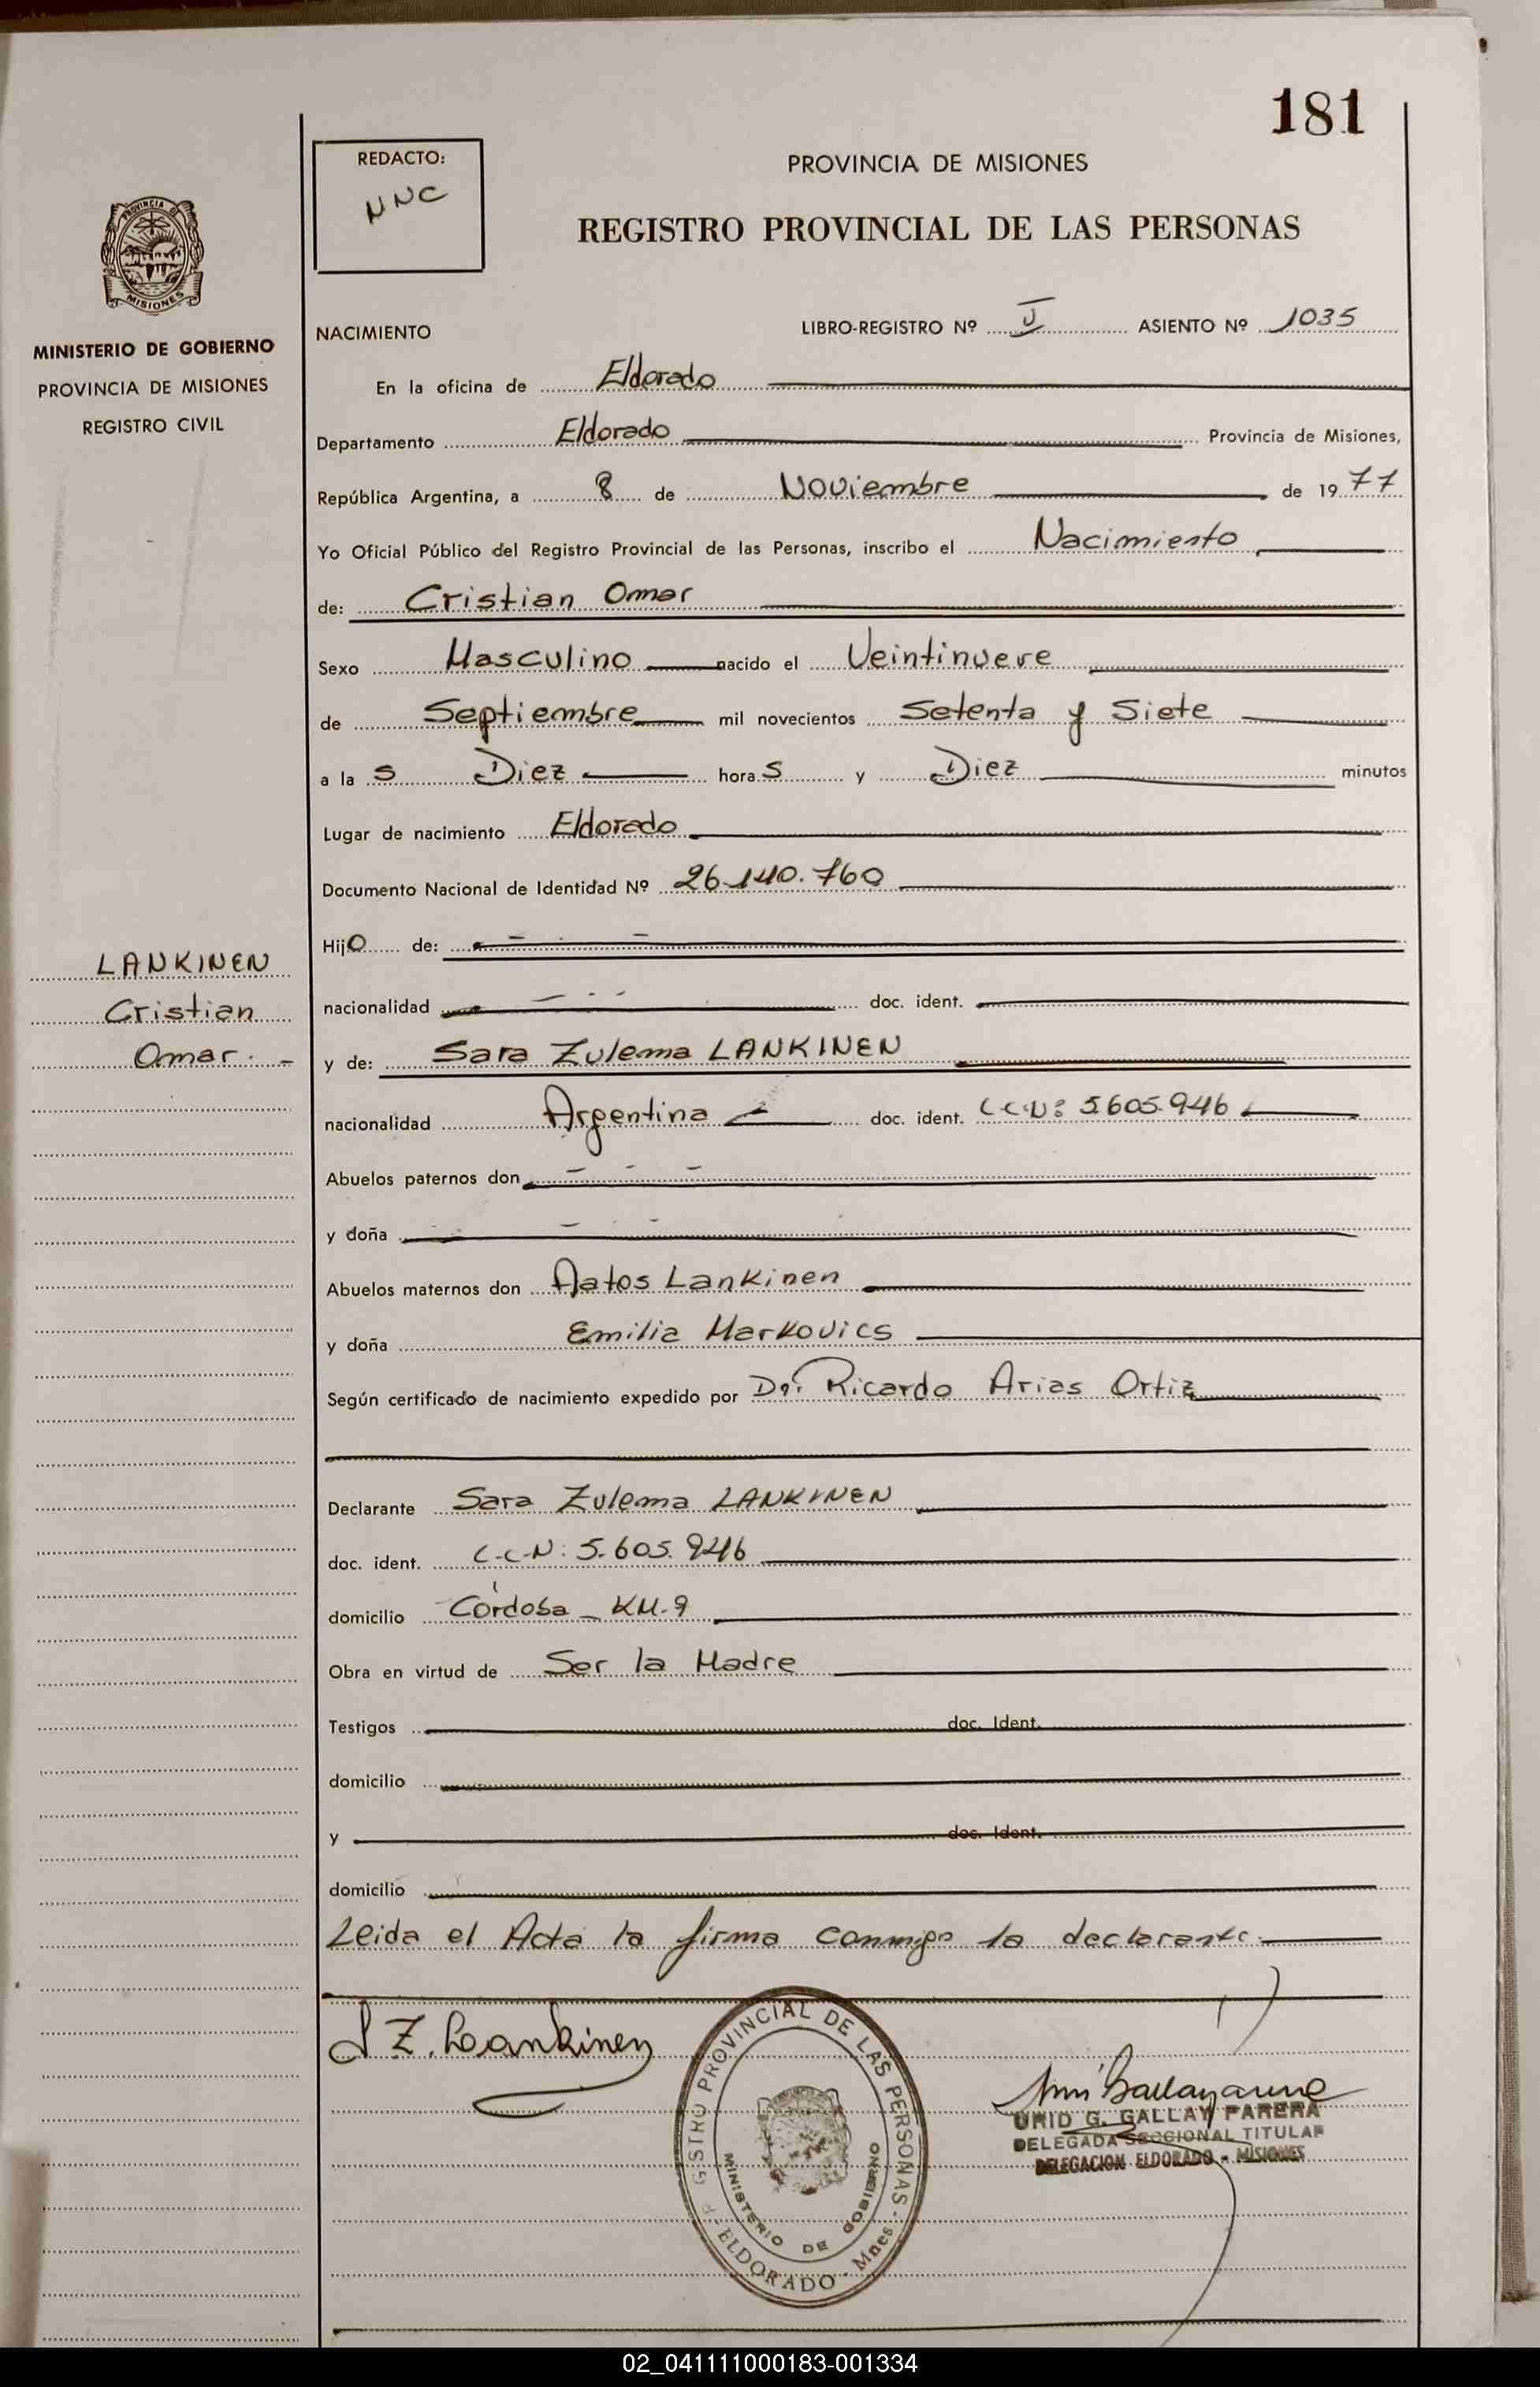 181
REDACTO:
NNC
PROVINCIA DE MISIONES
REGISTRO PROVINCIAL DE LAS PERSONAS
PROVINCIA DE
MISIONES
MINISTERIO DE GOBIERNO
PROVINCIA DE MISIONES
REGISTRO CIVIL
NACIMIENTO
LIBRO-REGISTRO Nº ASIENTO Nº 1035
En la oficina de Eldorado
Departamento Eldorado Provincia de Misiones,
República Argentina, a 8 de Noviembre de 1977
Yo Oficial Público del Registro Provincial de las Personas, inscribo el Nacimiento
de: Cristian Omar
Sexo Masculino nacido el Veintinueve
de Septiembre mil novecientos Setenta y Siete
a la s Diez hora s y Diez minutos
Lugar de nacimiento Eldorado
Documento Nacional de Identidad Nº 26.140.760
Hijo de:
LANKINEN
Cristian
Omar. -
nacionalidad doc. ident.
y de: Sara Zulema LANKINEN
nacionalidad Argentina doc. ident. C.C.Nº 5.605.946
Abuelos paternos don
y doña
Abuelos maternos don Aatos Lankinen
y doña Emilia Markovics
Según certificado de nacimiento expedido por Dr. Ricardo Arias Ortiz
Declarante Sara Zulema LANKINEN
doc. ident. C.C.N: 5.605.946
domicilio Córdoba - KM.9
Obra en virtud de Ser la Madre
Testigos doc. Ident.
domicilio
y doc. Ident.
domicilio
Leida el Acta la firma conmigo la declarante.
S Z. Lankinen
REGISTRO PROVINCIAL DE LAS PERSONAS
MINISTERIO DE GOBIERNO
- ELDORADO - Mnes -
G. GALLAY PARERA
DELEGADA SECCIONAL TITULAR
DELEGACION ELDORADO - MISIONES
02_041111000183-001334